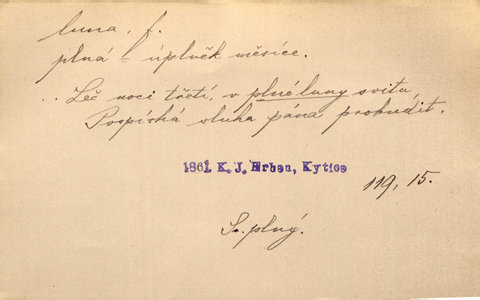 luna, f.
plná l úplněk měsíce.
.. Leč noci třetí, v plné luny svitu,
Pospíchá sluha pána probudit.
1861 K. J. Erben, Kytice
119, 15.
Sr. plný.